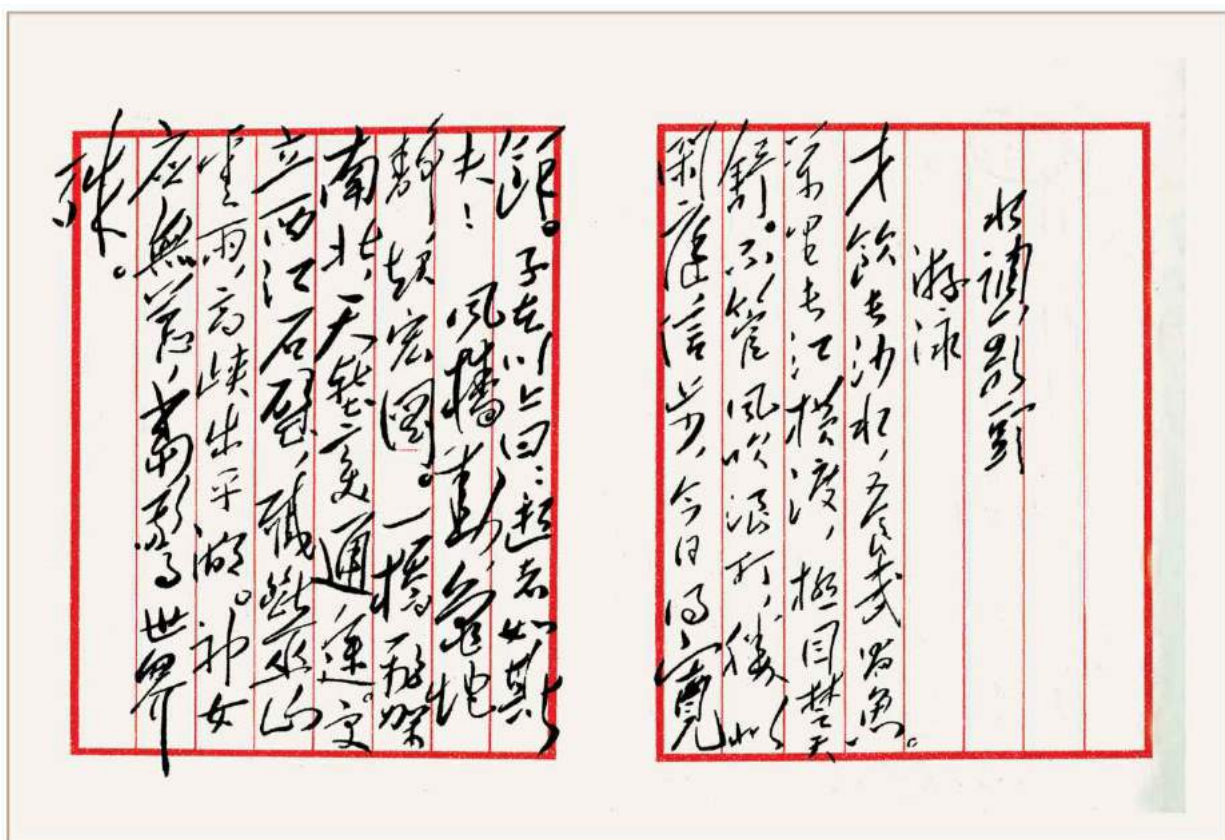 水調歌頭
游泳
才飲長沙水,又食武昌魚。
萬里長江橫渡,極目楚天
舒。不管風吹浪打,勝似
閑庭信步,今日得寬
餘。子在川上曰:逝者如斯
夫! 風檣動,龜蛇
靜,起宏圖。一橋飛架
南北,天塹變通途。更
立西江石壁,截斷巫山
雲雨,高峽出平湖。神女
應無恙,當驚世界
殊。